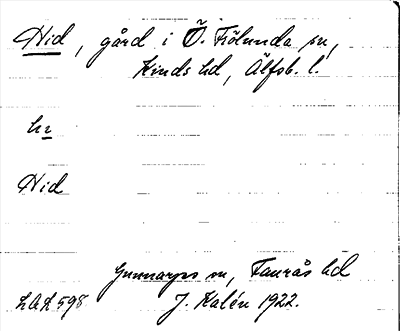 Hid, gård i Ö. Frölunda sn,
Kinds hd, Älfsb. l.
hr
Hid
Gunnarps sn, Faurås hd
LAL 598 J. Kalén 1922.